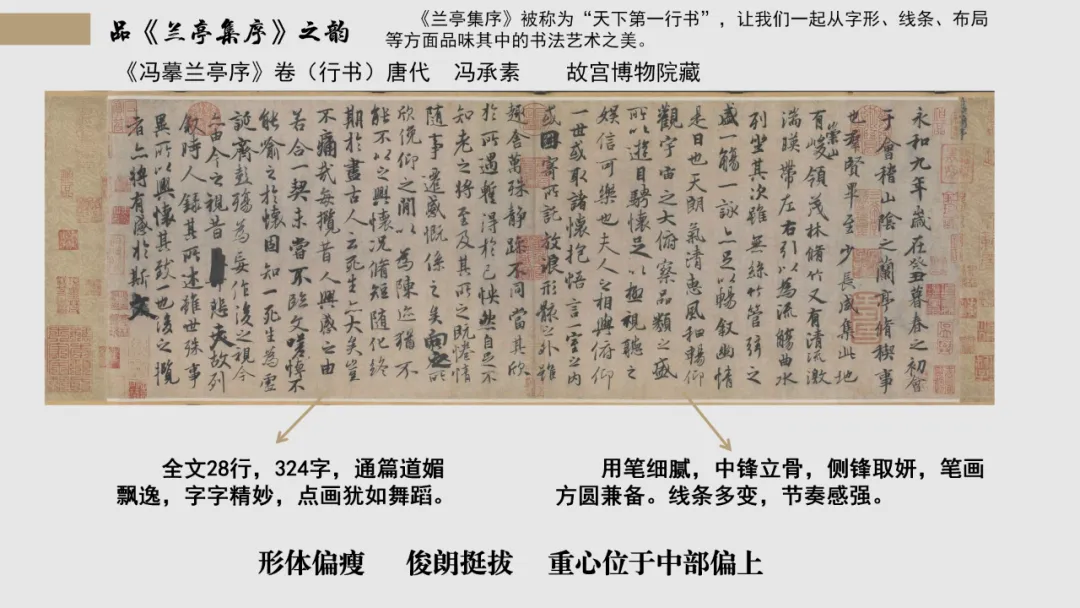 品《兰亭集序》之韵
《兰亭集序》被称为“天下第一行书”，让我们一起从字形、线条、布局
等方面品味其中的书法艺术之美。
《冯摹兰亭序》卷（行书）唐代 冯承素 故宫博物院藏
永和九年歲在癸丑暮春之初會
于會稽山陰之蘭亭脩稧事
也羣賢畢至少長咸集此地
有崇山峻領茂林脩竹又有清流激
湍暎帶左右引以為流觴曲水
列坐其次雖無絲竹管弦之
盛一觴一詠亦足以暢敘幽情
是日也天朗氣清惠風和暢仰
觀宇宙之大俯察品類之盛
所以遊目騁懷足以極視聽之
娛信可樂也夫人之相與俯仰
一世或取諸懷抱悟言一室之內
或因寄所託放浪形骸之外雖
趣舍萬殊靜躁不同當其欣
於所遇暫得於己怏然自足不
知老之將至及其所之既惓情
隨事遷感慨係之矣向之所
欣俛仰之閒以為陳迹猶不
能不以之興懷況脩短隨化終
期於盡古人云死生亦大矣豈
不痛哉每攬昔人興感之由
若合一契未嘗不臨文嗟悼不
能喻之於懷固知一死生為虛
誕齊彭殤為妄作後之視今
亦由今之視昔悲夫故列
敘時人錄其所述雖世殊事
異所以興懷其致一也後之攬
者亦將有感於斯文
全文28行，324字，通篇道媚
飘逸，字字精妙，点画犹如舞蹈。
用笔细腻，中锋立骨，侧锋取妍，笔画
方圆兼备。线条多变，节奏感强。
形体偏瘦 俊朗挺拔 重心位于中部偏上